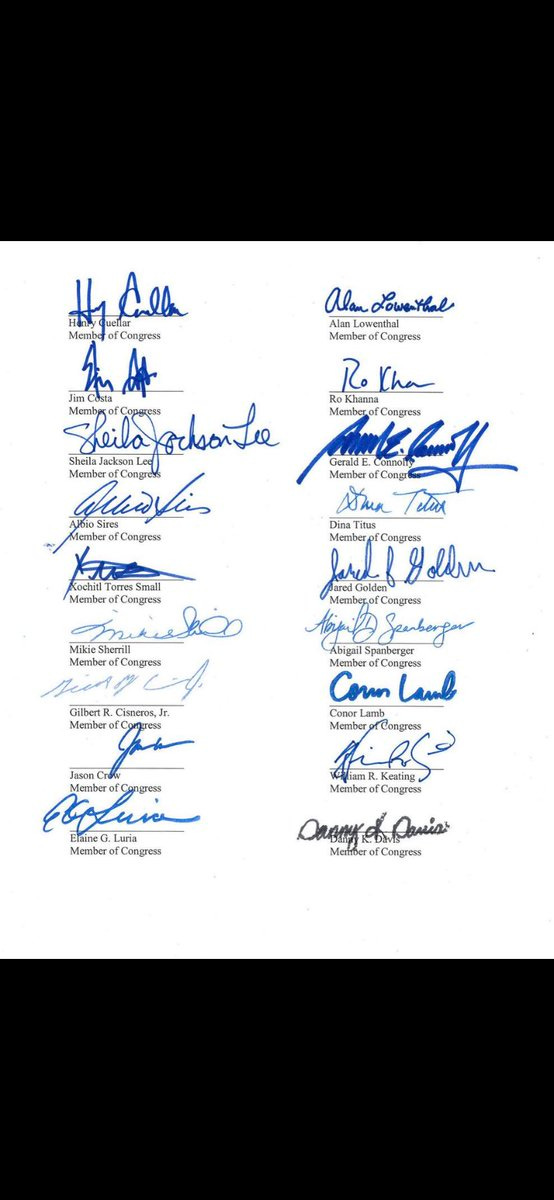 Hy Cuellar
Henry Cuellar
Member of Congress
Jim Costa
Member of Congress
Sheila Jackson Lee
Sheila Jackson Lee
Member of Congress
Albio Sires
Albio Sires
Member of Congress
Xochitl Torres Small
Member of Congress
Mikie Sherrill
Mikie Sherrill
Member of Congress
Gilbert R. Cisneros, Jr.
Member of Congress
Jason Crow
Member of Congress
Luria
Elaine G. Luria
Member of Congress
Alan Lowenthal
Alan Lowenthal
Member of Congress
Ro Khanna
Member of Congress
E.
Gerald E. Connolly
Member of Congress
Dina Titus
Dina Titus
Member of Congress
Jared F Golden
Jared Golden
Member of Congress
Abigail D Spanberger
Abigail Spanberger
Member of Congress
Conor Lamb
Conor Lamb
Member of Congress
William R. Keating
Member of Congress
Danny K Davis
Danny K. Davis
Member of Congress